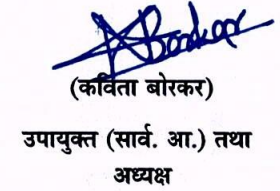 (कविता बोरकर)
उपायुक्त (सार्व. आ.) तथा
अध्यक्ष